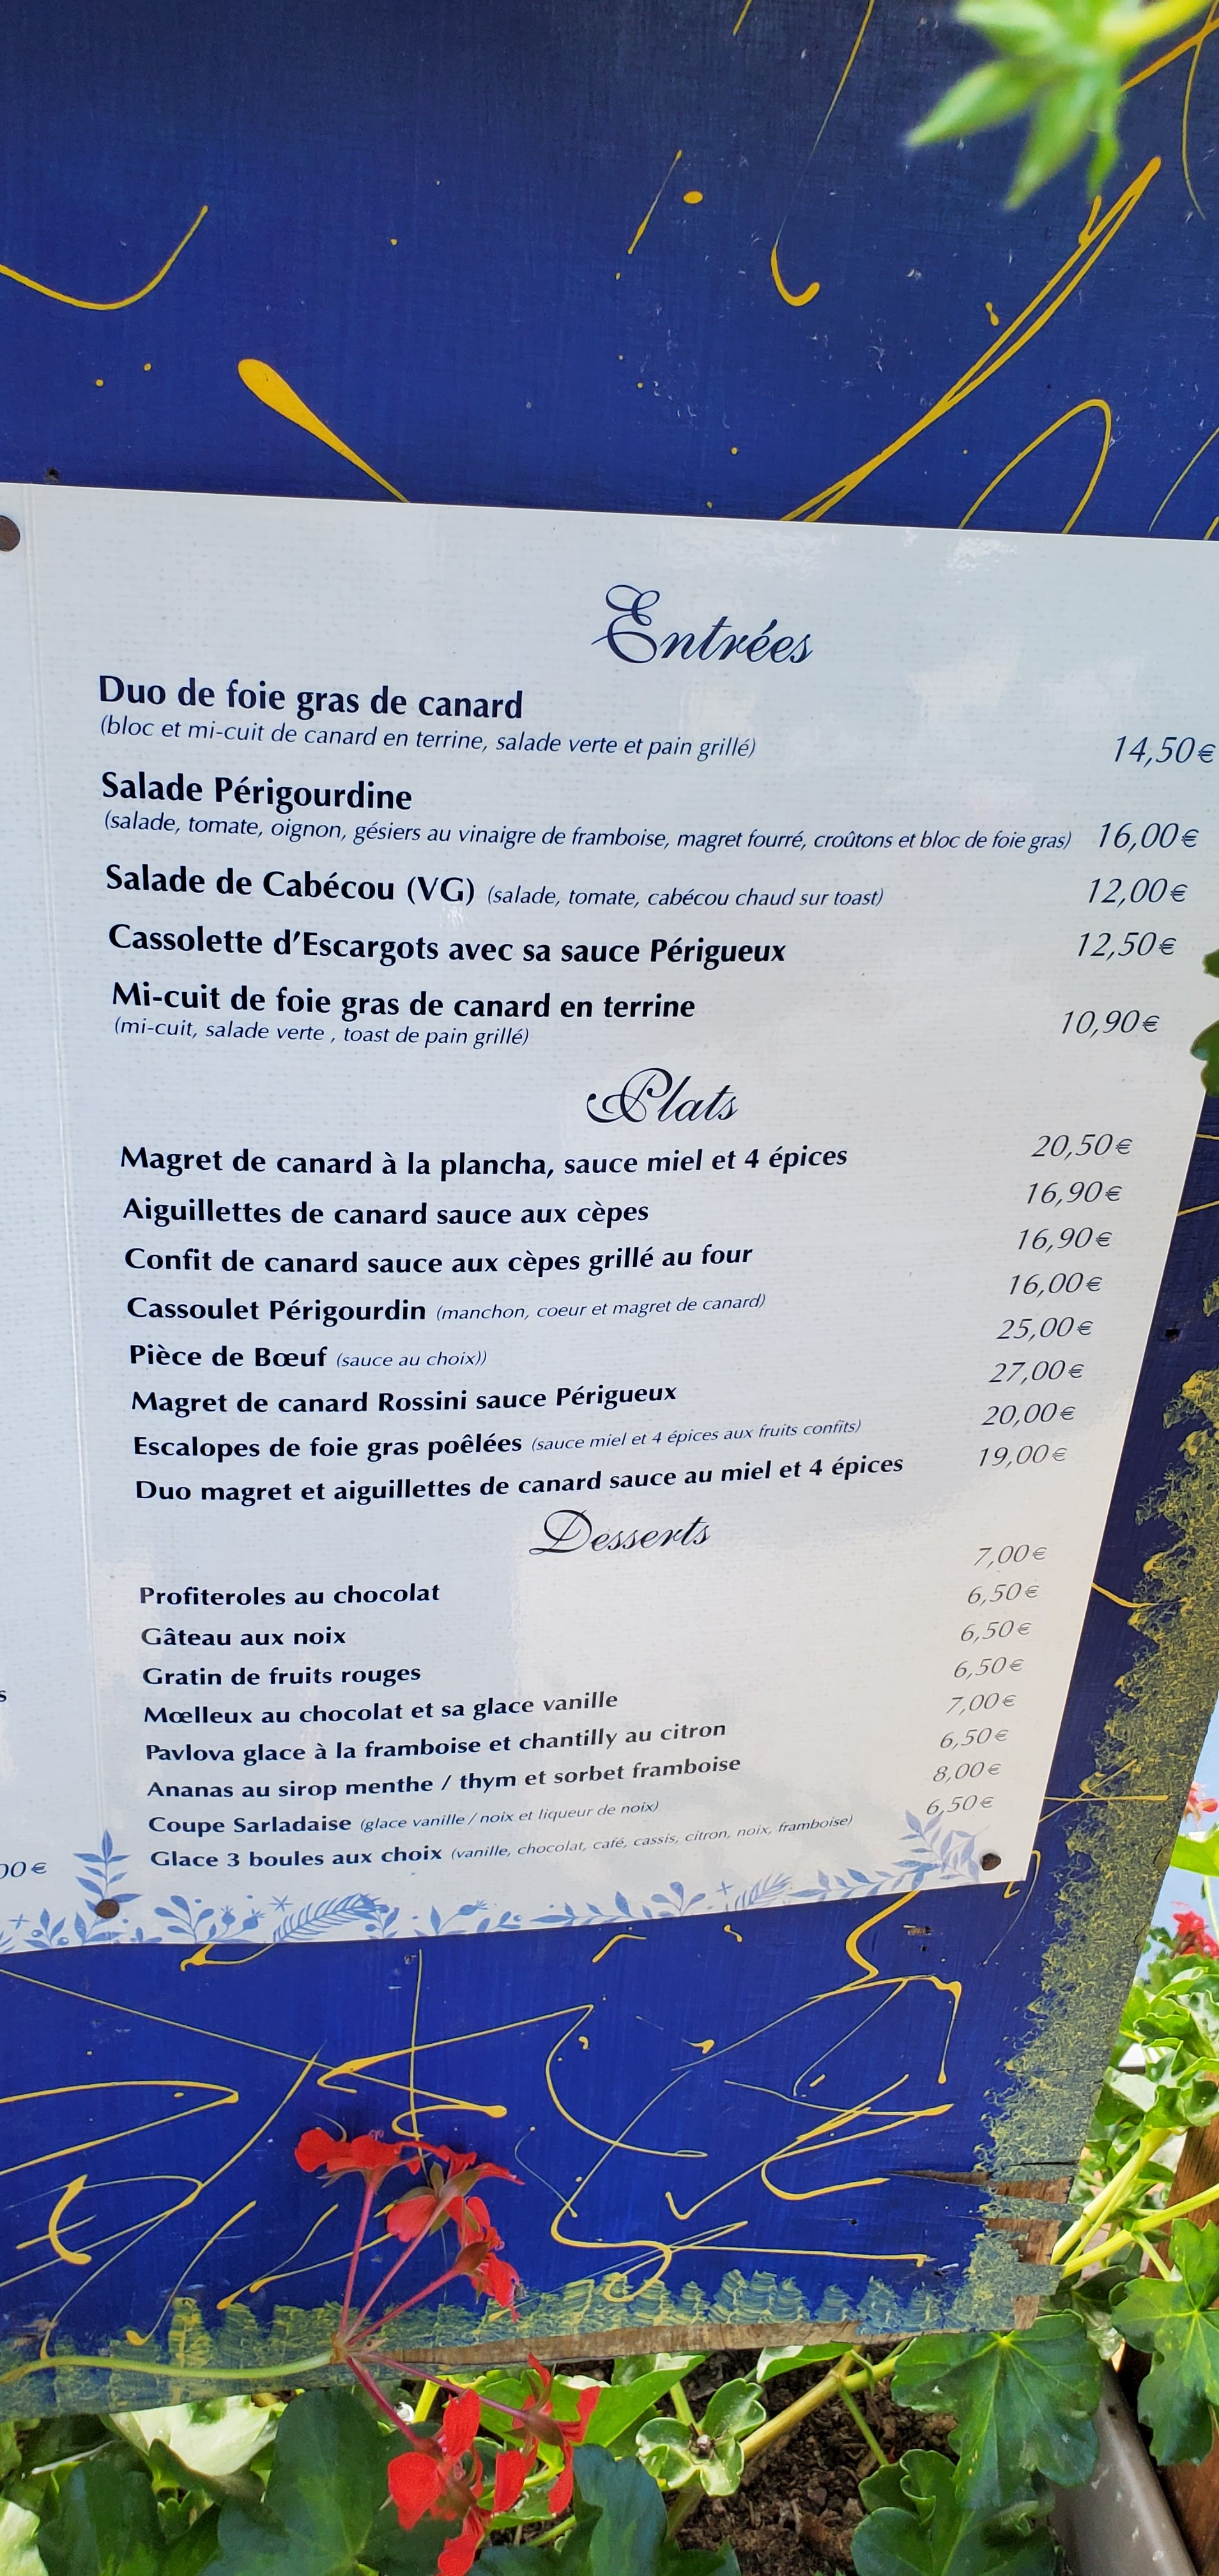 Entrées
Duo de foie gras de canard
(bloc et mi-cuit de canard en terrine, salade verte et pain grillé) 14,50€
Salade Périgourdine
(salade, tomate, oignon, gésiers au vinaigre de framboise, magret fourré, croûtons et bloc de foie gras) 16,00€
Salade de Cabécou (VG) (salade, tomate, cabécou chaud sur toast) 12,00€
Cassolette d'Escargots avec sa sauce Périgueux 12,50€
Mi-cuit de foie gras de canard en terrine
(mi-cuit, salade verte , toast de pain grillé) 10,90€
Plats
Magret de canard à la plancha, sauce miel et 4 épices 20,50€
Aiguillettes de canard sauce aux cèpes 16,90€
Confit de canard sauce aux cèpes grillé au four 16,90€
Cassoulet Périgourdin (manchon, coeur et magret de canard) 16,00€
Pièce de Bœuf (sauce au choix)) 25,00€
Magret de canard Rossini sauce Périgueux 27,00€
Escalopes de foie gras poêlées (sauce miel et 4 épices aux fruits confits) 20,00€
Duo magret et aiguillettes de canard sauce au miel et 4 épices 19,00€
Desserts
Profiteroles au chocolat 7,00€
Gâteau aux noix 6,50€
Gratin de fruits rouges 6,50€
Mœlleux au chocolat et sa glace vanille 6,50€
Pavlova glace à la framboise et chantilly au citron 7,00€
Ananas au sirop menthe / thym et sorbet framboise 6,50€
Coupe Sarladaise (glace vanille / noix et liqueur de noix) 8,00€
Glace 3 boules aux choix (vanille, chocolat, café, cassis, citron, noix, framboise) 6,50€